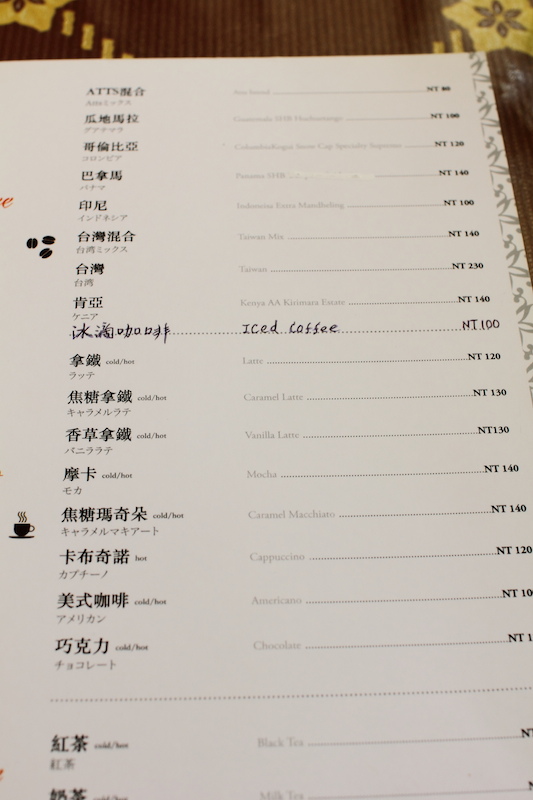 ATTS混合 NT 80
Attsミックス
瓜地馬拉 Guatemala SHB Huehuetango NT 100
グアテマラ
哥倫比亞 NT 120
コロンビア
巴拿馬 Panama SHB NT 140
パナマ
印尼 Indonisia Extra Mandheling NT 100
インドネシア
台灣混合 Taiwan Mix NT 140
台湾ミックス
台灣 Taiwan NT 230
台湾
肯亞 Kenya AA Kirimara Estate NT 140
ケニア
冰滴咖啡 Iced Coffee NT100
拿鐵 cold/hot Latte NT 120
ラッテ
焦糖拿鐵 cold/hot Caramel Latte NT 130
キャラメルラテ
香草拿鐵 cold/hot Vanilla Latte NT130
バニララテ
摩卡 cold/hot Mocha NT 140
モカ
焦糖瑪奇朵 cold/hot Caramel Macchiato NT 140
キャラメルマキアート
卡布奇諾 hot Cappuccino NT 120
カプチーノ
美式咖啡 cold/hot Americano NT 10
アメリカン
巧克力 cold/hot Chocolate NT 1
チョコレート
紅茶 cold/hot Black Tea NT
紅茶
奶茶 cold/hot Milk Tea